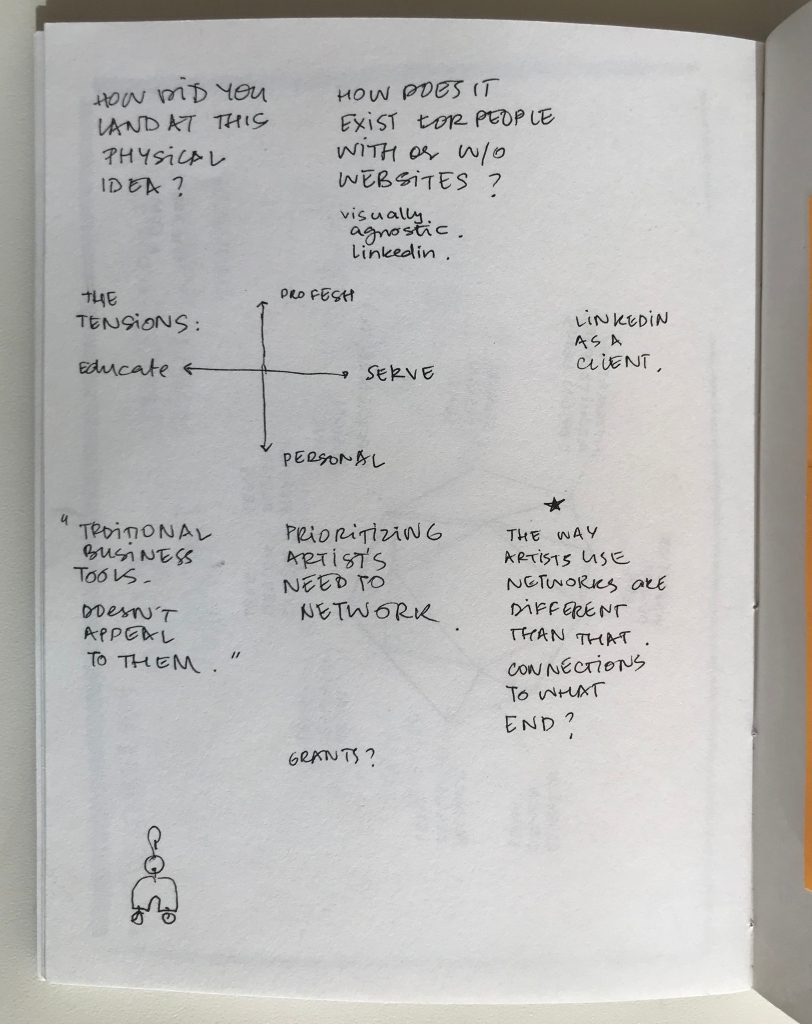 HOW DID YOU
LAND AT THIS
PHYSICAL
IDEA?
HOW DOES IT
EXIST FOR PEOPLE
WITH OR W/O
WEBSITES?
visually
agnostic.
linkedin.
THE
TENSIONS:
PROFESH
Educate
SERVE
PERSONAL
LINKEDIN
AS A
CLIENT.
" TRDITIONAL
BUSINESS
TOOLS.
DOESN'T
APPEAL
TO THEM."
PRIORITIZING
ARTIST'S
NEED TO
NETWORK.
THE WAY
ARTISTS USE
NETWORKS ARE
DIFFERENT
THAN THAT.
CONNECTIONS
TO WHAT
END?
GRANTS?